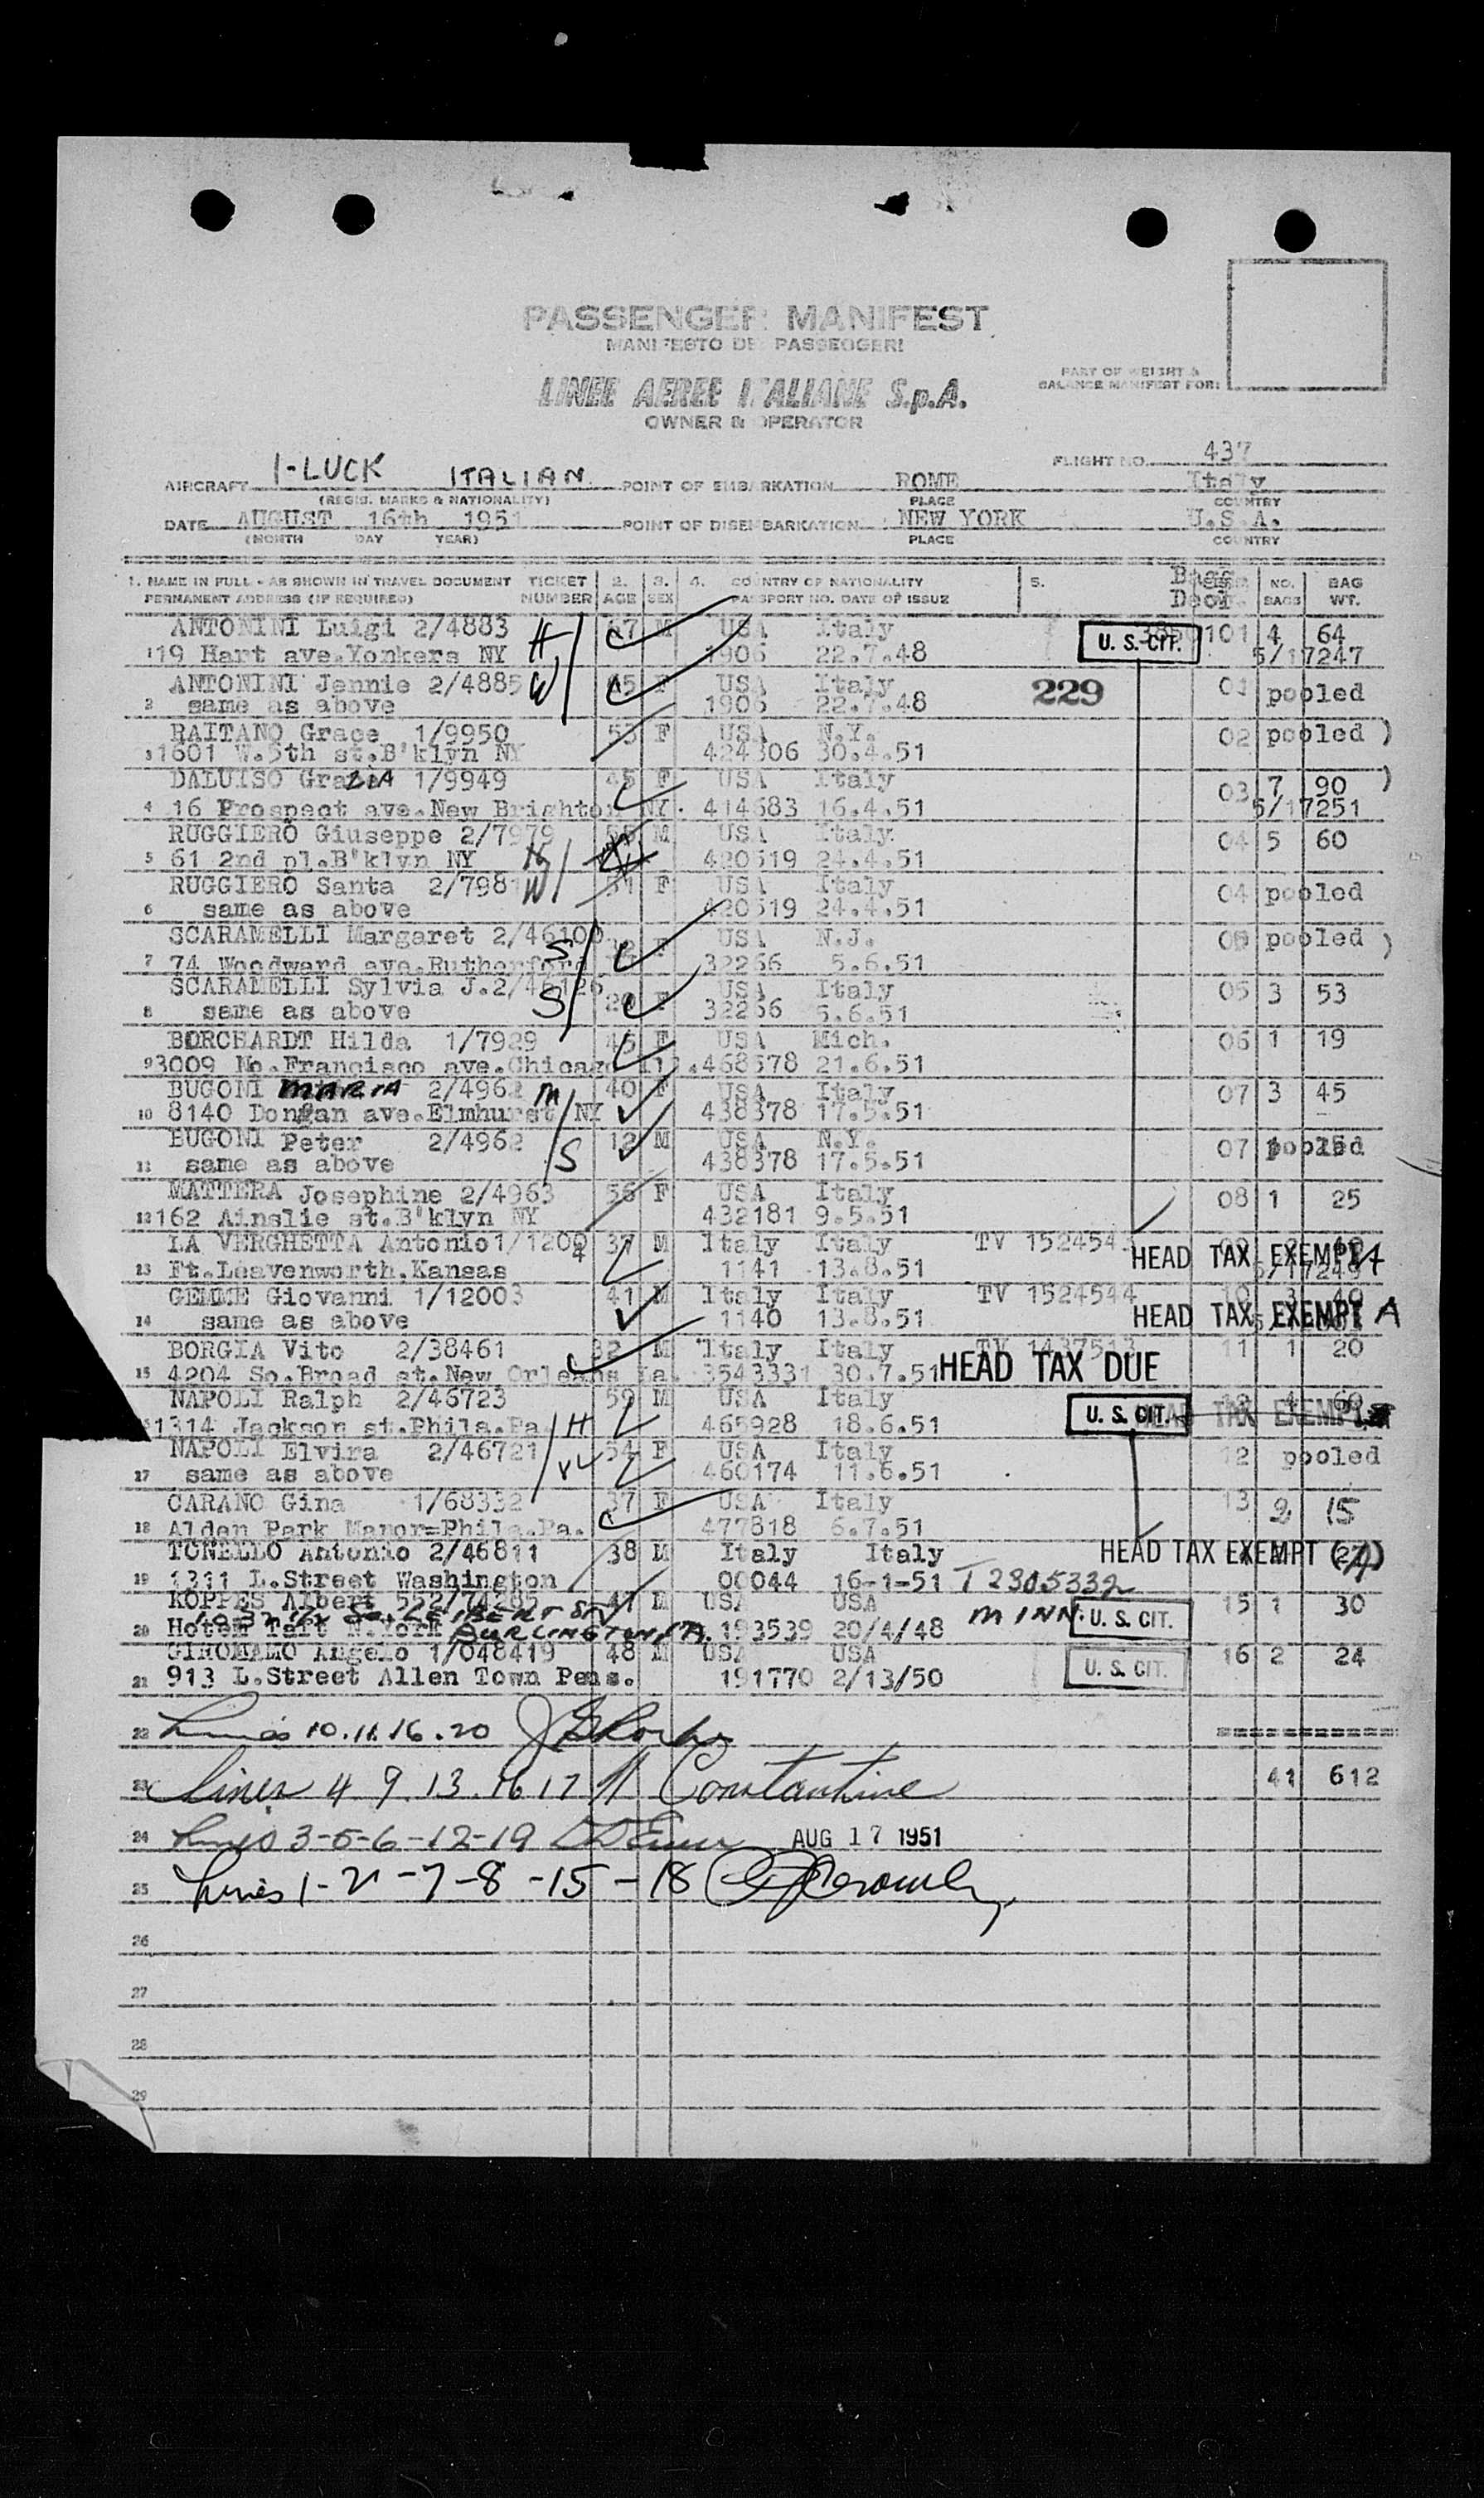 PASSENGER MANIFEST
MANIFESTO DEI PASSEGGERI
LINEE AEREE ITALIANE S.p.A.
OWNER & OPERATOR
PART OF WEIGHT &
BALANCE MANIFEST FOR:
AIRCRAFT I-LUCK ITALIAN POINT OF EMBARKATION ROME Italy FLIGHT NO. 437
(REGIS. MARKS & NATIONALITY) PLACE COUNTRY
DATE AUGUST 16th 1951 POINT OF DISEMBARKATION NEW YORK U.S.A.
(MONTH DAY YEAR) PLACE COUNTRY
1. NAME IN FULL - AS SHOWN IN TRAVEL DOCUMENT TICKET 2. 3. 4. COUNTRY OF NATIONALITY 5. Bagg NO. BAG
PERMANENT ADDRESS (IF REQUIRED) NUMBER AGE SEX PASSPORT NO. DATE OF ISSUE BAGS WT.
ANTONINI Luigi 2/4883 H 67 M USA Italy U. S. CIT. 0101 4 64
1 19 Hart ave.Yonkers NY 1906 22.7.48 5/17247
ANTONINI Jennie 2/4885 W F USA Italy 229 01 pooled
2 same as above 1906 22.7.48
RAITANO Grace 1/9950 53 F USA N.Y. 02 pooled )
3 1601 W.5th st.B'klyn NY 424306 30.4.51
DALUISO GraZIA 1/9949 45 F USA Italy 03 7 90 )
4 16 Prospect ave.New Brighton NY. 414683 16.4.51 5/17251
RUGGIERO Giuseppe 2/7979 M USA Italy 04 5 60
5 61 2nd pl.B'klyn NY H 420519 24.4.51
RUGGIERO Santa 2/7981 W 51 F USA Italy 04 pooled
6 same as above 420519 24.4.51
SCARAMELLI Margaret 2/46100 S F USA N.J. pooled )
7 74 Woodward ave.Rutherford 32266 5.6.51
SCARAMELLI Sylvia J.2/46126 S 20 F USA Italy 05 3 53
8 same as above 32266 5.6.51
BORCHARDT Hilda 1/7929 45 F USA Mich. 06 1 19
9 3009 No.Francisco ave.Chicago Ill.468578 21.6.51
BUGONI MARIA 2/4962 M 40 F USA Italy 07 3 45
10 8140 Dongan ave.Elmhurst NY 438378 17.5.51
BUGONI Peter 2/4962 S 12 M USA N.Y. 07 pooled
11 same as above 438378 17.5.51
MATTERA Josephine 2/4963 56 F USA Italy 08 1 25
12 162 Ainslie st.B'klyn NY 432181 9.5.51
LA VERGHETTA Antonio 1/12004 37 M Italy Italy TV 152454 HEAD TAX EXEMPT A
13 Ft.Leavenworth.Kansas 1141 13.8.51
GEMME Giovanni 1/12003 41 M Italy Italy TV 1524544 HEAD TAX EXEMPT A
14 same as above 1140 13.8.51
BORGIA Vito 2/38461 32 M Italy Italy TV 1437513 11 1 20
15 4204 So.Broad st.New Orleans La. 3543331 30.7.51 HEAD TAX DUE
NAPOLI Ralph 2/46723 59 M USA Italy U. S. CIT. HEAD TAX EXEMPT
1314 Jackson st.Phila.Pa H 465928 18.6.51
NAPOLI Elvira 2/46721 W 54 F USA Italy 12 pooled
17 same as above 460174 11.6.51
CARANO Gina 1/68332 37 F USA Italy 13 2 15
18 Alden Park Manor=Phila.Pa. 477818 6.7.51
TONELLO Antonio 2/46811 38 M Italy Italy HEAD TAX EXEMPT (A)
19 1311 L.Street Washington 00044 16-1-51 T 2305332
KOPPES Albert 552/74285 41 M USA USA MINN. U. S. CIT. 15 1 30
20 Hotel Taft N.York BURLINGTON 193539 20/4/48
GIROMALO Angelo 1/048419 48 M USA USA U. S. CIT. 16 2 24
21 913 L.Street Allen Town Pens. 191770 2/13/50
22 Lines 10.11.16.20
23 Lines 4 9.13.16 17 Constantine 41 612
24 Lines 3-5-6-12-19 AUG 17 1951
25 Lines 1-2-7-8-15-18
26
27
28
29